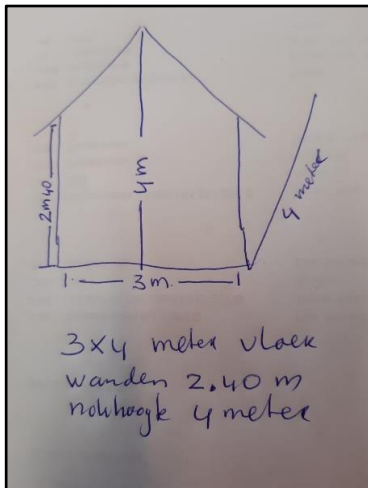 2m40
4m
4 meter
1. 3m. 1
3x4 meter vloer
wanden 2.40 m
nokhoogte 4 meter